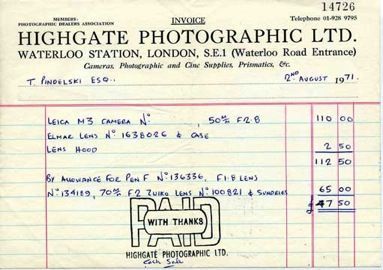 14726
MEMBERS:
PHOTOGRAPHIC DEALERS ASSOCIATION
INVOICE
Telephone 01-928 9795
HIGHGATE PHOTOGRAPHIC LTD.
WATERLOO STATION, LONDON, S.E.1 (Waterloo Road Entrance)
Cameras, Photographic and Cine Supplies, Prismatics, &c.
T. PINDELSKI ESQ.. 2ND AUGUST 1971.
LEICA M3 CAMERA No , 50m F2.8 110 00
ELMAR LENS No 1638026 & CASE
LENS HOOD 2 50
112 50
BY ALLOWANCE FOR PEN F No 136336, F1.8 LENS
No 134189, 70m F2 ZUIKO LENS No 100821 & SUNDRIES 65 00
£47 50
PAID
WITH THANKS
HIGHGATE PHOTOGRAPHIC LTD.
Cash Sale